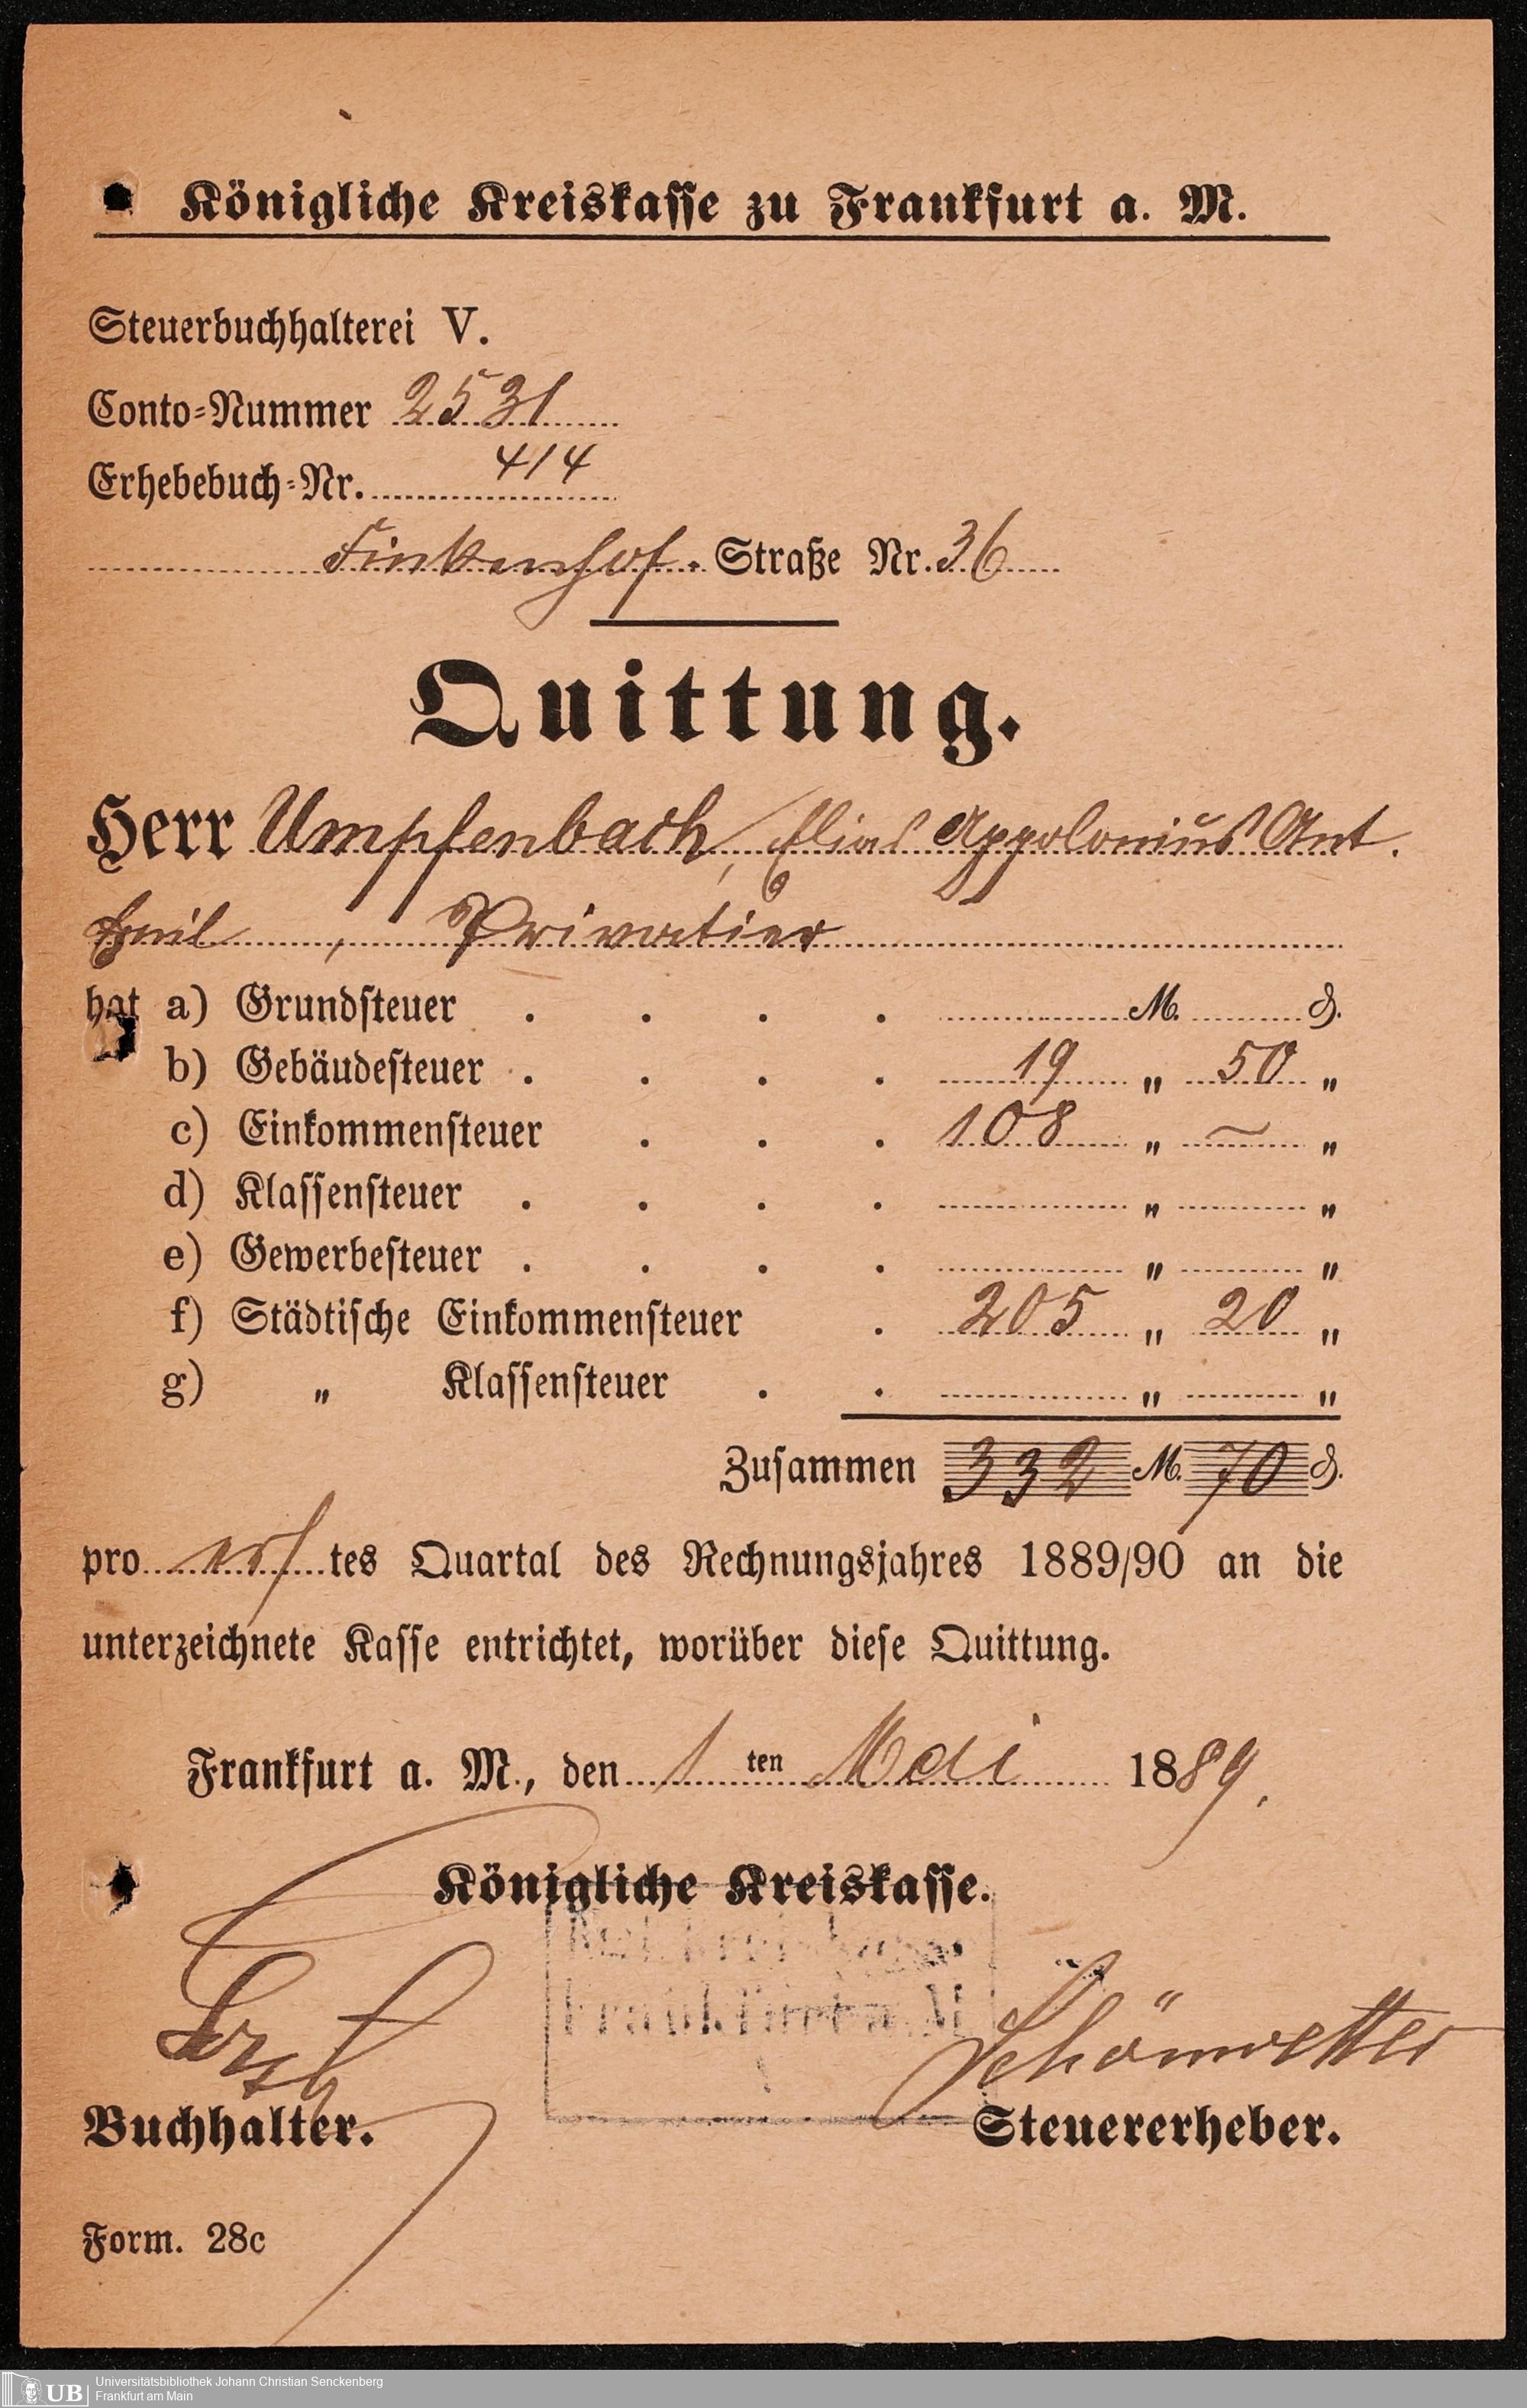 Königliche Kreiskasse zu Frankfurt a. M.
Steuerbuchhalterei V.
Conto-Nummer 2531
Erhebebuch-Nr. 414
Finkenhof-Straße Nr. 36
Quittung.
Herr Umpfenbach, Elias Appolonius Ant.
Emil, Privatier
hat a) Grundsteuer . . . . M. ₰.
b) Gebäudesteuer . . . . 19 „ 50 „
c) Einkommensteuer . . . 108 „ — „
d) Klassensteuer . . . . „ „
e) Gewerbesteuer . . . . „ „
f) Städtische Einkommensteuer . 205 „ 20 „
g) „ Klassensteuer . . „ „
Zusammen 332 M. 70 ₰.
pro erstes Quartal des Rechnungsjahres 1889/90 an die
unterzeichnete Kasse entrichtet, worüber diese Quittung.
Frankfurt a. M., den 1 ten Mai 1889.
Königliche Kreiskasse.
Frankfurt a. M
Schönwetter
Buchhalter. Steuererheber.
Form. 28c
UB Universitätsbibliothek Johann Christian Senckenberg
Frankfurt am Main